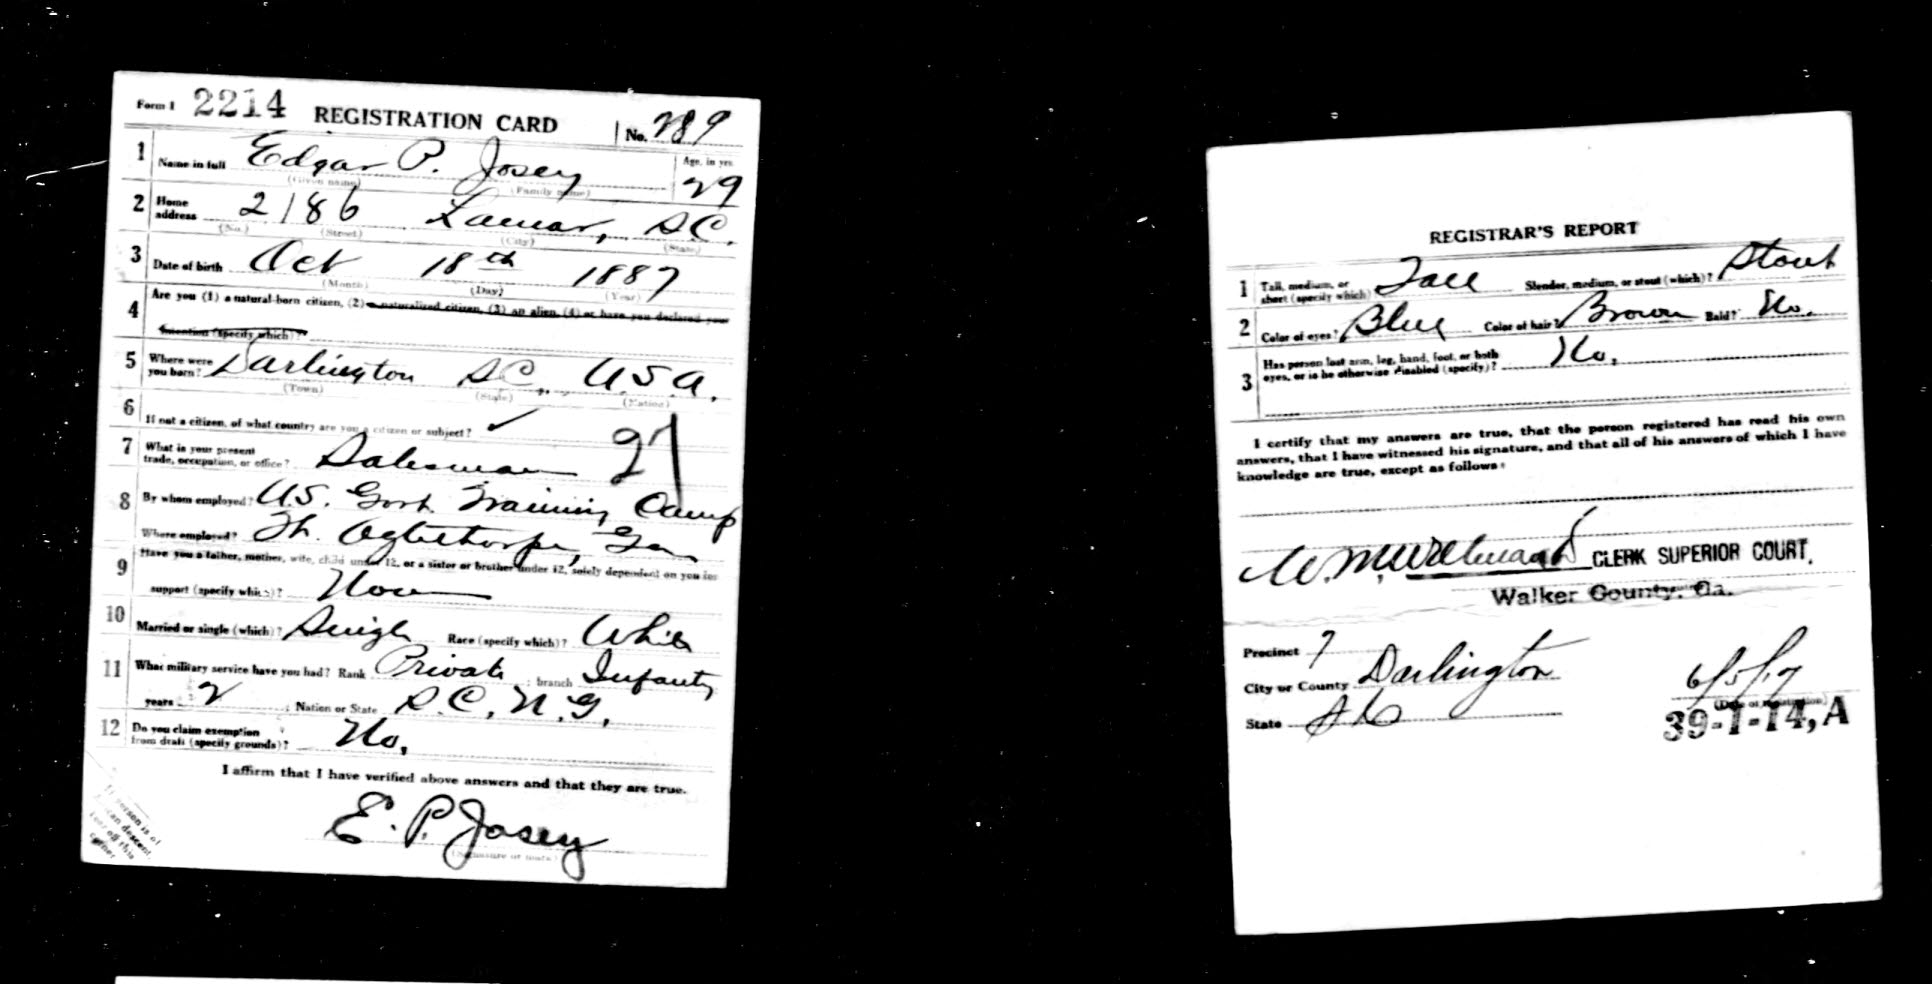 Form 1 2214 REGISTRATION CARD No. 289
1 Name in full Edgar P. Josey Age, in yrs. 29
(Given name) (Family name)
2 Home address 2186 Lamar, S.C.
(No.) (Street) (City) (State)
3 Date of birth Oct 18th 1887
(Month) (Day) (Year)
4 Are you (1) a natural-born citizen, (2) a naturalized citizen, (3) an alien, (4) or have you declared your
intention (specify which)?
5 Where were you born? Darlington S.C., U.S.A.
(Town) (State) (Nation)
6 If not a citizen, of what country are you a citizen or subject? ✓
7 What is your present trade, occupation, or office? Salesman 21
8 By whom employed? U.S. Govt. Training Camp
Where employed? Ft. Oglethorpe, Ga
9 Have you a father, mother, wife, child under 12, or a sister or brother under 12, solely dependent on you for
support (specify which)? None
10 Married or single (which)? Single Race (specify which)? White
11 What military service have you had? Rank Private ; branch Infantry
years 2 ; Nation or State S.C. N.G.
12 Do you claim exemption from draft (specify grounds)? No.
I affirm that I have verified above answers and that they are true.
E. P. Josey
(Signature or mark)
If person is of
can descent,
tear off this
corner
REGISTRAR'S REPORT
1 Tall, medium, or short (specify which)? Tall Slender, medium, or stout (which)? Stout
2 Color of eyes? Blue Color of hair? Brown Bald? No.
3 Has person lost arm, leg, hand, foot, or both
eyes, or is he otherwise disabled (specify)? No.
I certify that my answers are true, that the person registered has read his own
answers, that I have witnessed his signature, and that all of his answers of which I have
knowledge are true, except as follows:
CLERK SUPERIOR COURT,
Walker County, Ga.
Precinct 7
City or County Darlington
State S C
6/5/17
(Date of registration)
39-1-14, A